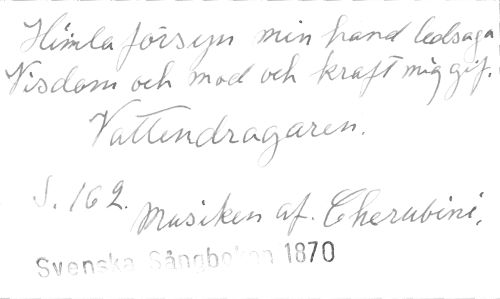 Himla försyn min hand ledsaga
Visdom och mod och kraft mig gif.
Vattendragaren.
S. 162. Musiken af. Cherubini.
Svenska Sångboken 1870